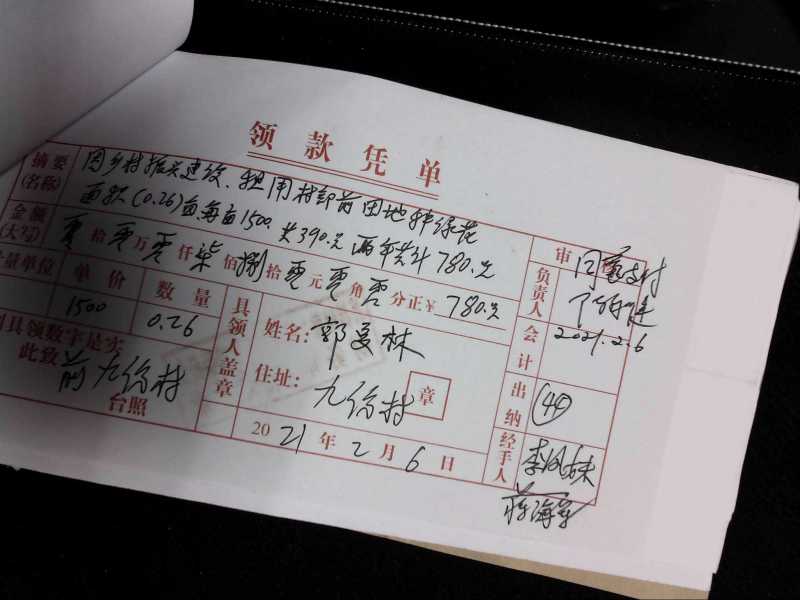 领款凭单
摘要 因乡村振兴建设、租用村部前田地种绿花
(名称) 面积(0.26)亩,每亩1500. 共390.元 两年共计780.元
金额(大写) 零拾零万零仟柒佰捌拾零元零角零分正¥780.元
量单位 单价 数量
1500 0.26
具领数字是实
此致 前九份村
台照
具领人盖章
姓名: 郭夏林
住址: 九份村 章
2021年2月6日
审 同意支付
负责人
2021.2.6
会计
出纳 44
经手人 李凤妹